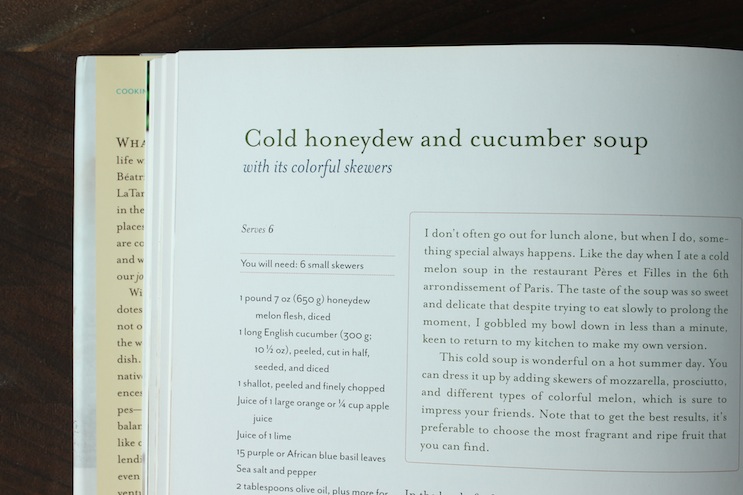 COOKIN
WHA
life w
Béatr
LaTar
in the
places
are co
and w
our jo
Wi
dotes
not o
the w
dish.
nativ
ences
pes—
balan
like c
lendi
even
ventu
Cold honeydew and cucumber soup
with its colorful skewers
Serves 6
You will need: 6 small skewers
1 pound 7 oz (650 g) honeydew
melon flesh, diced
1 long English cucumber (300 g;
10 ½ oz), peeled, cut in half,
seeded, and diced
1 shallot, peeled and finely chopped
Juice of 1 large orange or ¼ cup apple
juice
Juice of 1 lime
15 purple or African blue basil leaves
Sea salt and pepper
2 tablespoons olive oil, plus more for
I don't often go out for lunch alone, but when I do, some-
thing special always happens. Like the day when I ate a cold
melon soup in the restaurant Pères et Filles in the 6th
arrondissement of Paris. The taste of the soup was so sweet
and delicate that despite trying to eat slowly to prolong the
moment, I gobbled my bowl down in less than a minute,
keen to return to my kitchen to make my own version.
This cold soup is wonderful on a hot summer day. You
can dress it up by adding skewers of mozzarella, prosciutto,
and different types of colorful melon, which is sure to
impress your friends. Note that to get the best results, it's
preferable to choose the most fragrant and ripe fruit that
you can find.